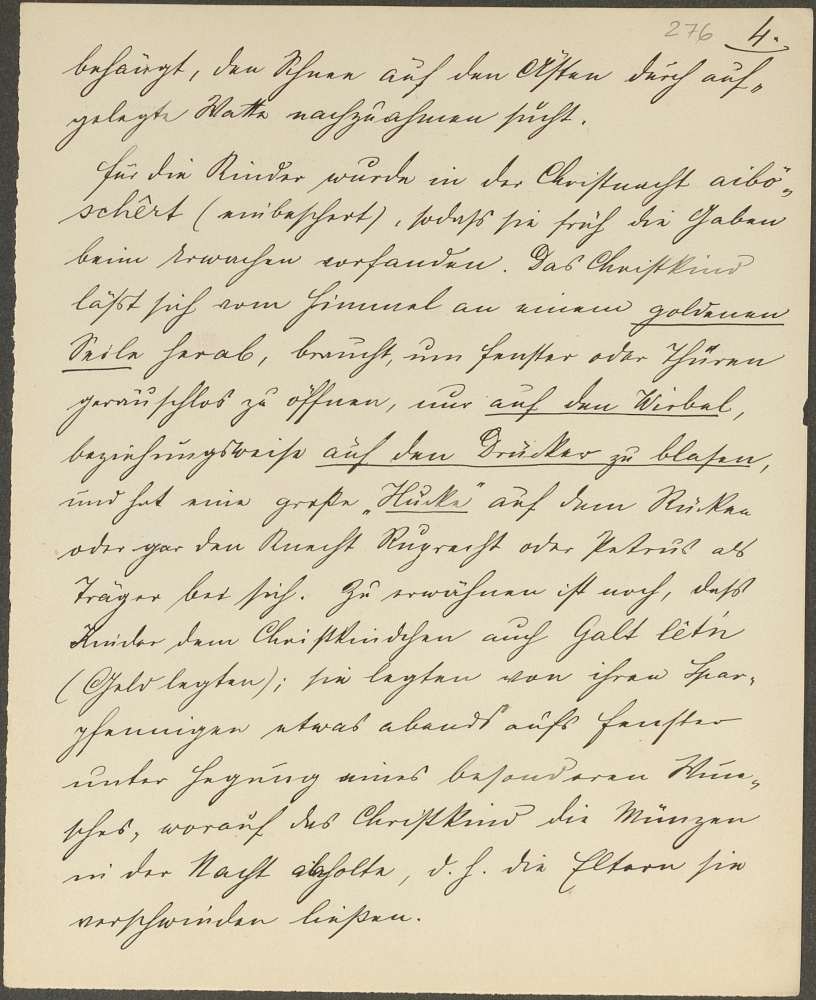 276 4.
behängt, den Schnee auf den Ästen durch auf-
gelegte Watte nachzuahmen sucht.
Für die Kinder wurde in der Christnacht aibö-
schêrt (einbeschert), sodaß sie früh die Gaben
beim Erwachen vorfanden. Das Christkind
läßt sich vom Himmel an einem goldenen
Seile herab, braucht, um Fenster oder Thüren
geräuschlos zu öffnen, nur auf den Wirbel,
beziehungsweise auf den Drücker zu blasen,
und hat eine große „Hucke" auf dem Rücken
oder gar den Knecht Ruprecht oder Petrus als
Träger bei sich. Zu erwähnen ist noch, daß
Kinder dem Christkindchen auch Galt lêtn
(Geld legten); sie legten von ihren Spar-
pfennigen etwas abends aufs Fenster
unter Hegung eines besonderen Wun-
sches, worauf das Christkind die Münzen
in der Nacht abholte, d. h. die Eltern sie
verschwinden ließen.